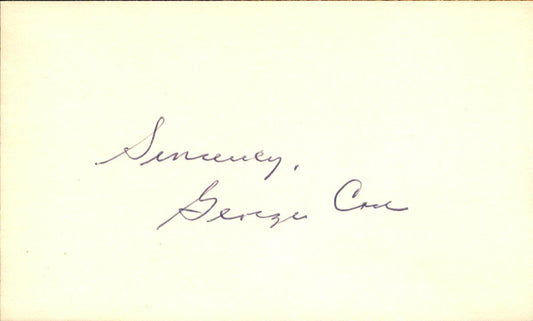 Sincerely,
George